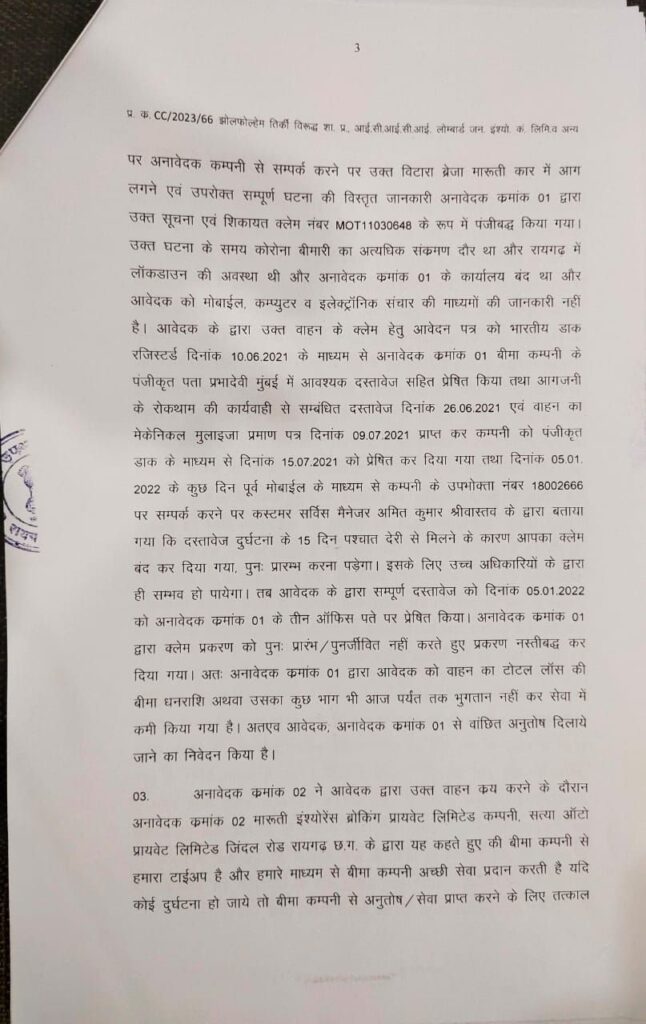 3
प्र. क. CC/2023/66 झोलफोल्हेम तिर्की विरूद्ध शा. प्र., आई.सी.आई.सी.आई. लोम्बार्ड जन. इंश्यो. कं. लिमि.व अन्य
पर अनावेदक कम्पनी से सम्पर्क करने पर उक्त विटारा ब्रेजा मारूती कार में आग
लगने एवं उपरोक्त सम्पूर्ण घटना की विस्तृत जानकारी अनावेदक कमांक 01 द्वारा
उक्त सूचना एवं शिकायत क्लेम नंबर MOT11030648 के रूप में पंजीबद्ध किया गया।
उक्त घटना के समय कोरोना बीमारी का अत्यधिक संकमण दौर था और रायगढ़ में
लॉकडाउन की अवस्था थी और अनावेदक कमांक 01 के कार्यालय बंद था और
आवेदक को मोबाईल, कम्प्युटर व इलेक्ट्रॉनिक संचार की माध्यमों की जानकारी नहीं
है। आवेदक के द्वारा उक्त वाहन के क्लेम हेतु आवेदन पत्र को भारतीय डाक
रजिस्टर्ड दिनांक 10.06.2021 के माध्यम से अनावेदक कमांक 01 बीमा कम्पनी के
पंजीकृत पता प्रभादेवी मुंबई में आवश्यक दस्तावेज सहित प्रेषित किया तथा आगजनी
के रोकथाम की कार्यवाही से सम्बंधित दस्तावेज दिनांक 26.06.2021 एवं वाहन का
मेकेनिकल मुलाइजा प्रमाण पत्र दिनांक 09.07.2021 प्राप्त कर कम्पनी को पंजीकृत
डाक के माध्यम से दिनांक 15.07.2021 को प्रेषित कर दिया गया तथा दिनांक 05.01.
2022 के कुछ दिन पूर्व मोबाईल के माध्यम से कम्पनी के उपभोक्ता नंबर 18002666
पर सम्पर्क करने पर कस्टमर सर्विस मैनेजर अमित कुमार श्रीवास्तव के द्वारा बताया
गया कि दस्तावेज दुर्घटना के 15 दिन पश्चात देरी से मिलने के कारण आपका क्लेम
बंद कर दिया गया, पुनः प्रारम्भ करना पड़ेगा। इसके लिए उच्च अधिकारियों के द्वारा
ही सम्भव हो पायेगा। तब आवेदक के द्वारा सम्पूर्ण दस्तावेज को दिनांक 05.01.2022
को अनावेदक कमांक 01 के तीन ऑफिस पते पर प्रेषित किया। अनावेदक कमांक 01
द्वारा क्लेम प्रकरण को पुनः प्रारंभ/पुनर्जीवित नहीं करते हुए प्रकरण नस्तीबद्ध कर
दिया गया। अतः अनावेदक कमांक 01 द्वारा आवेदक को वाहन का टोटल लॉस की
बीमा धनराशि अथवा उसका कुछ भाग भी आज पर्यंत तक भुगतान नहीं कर सेवा में
कमी किया गया है। अतएव आवेदक, अनावेदक कमांक 01 से वांछित अनुतोष दिलाये
जाने का निवेदन किया है।
03. अनावेदक कमांक 02 ने आवेदक द्वारा उक्त वाहन कय करने के दौरान
अनावेदक कमांक 02 मारूती इंश्योरेंस ब्रोकिंग प्रायवेट लिमिटेड कम्पनी, सत्या ऑटो
प्रायवेट लिमिटेड जिंदल रोड रायगढ़ छ.ग. के द्वारा यह कहते हुए की बीमा कम्पनी से
हमारा टाईअप है और हमारे माध्यम से बीमा कम्पनी अच्छी सेवा प्रदान करती है यदि
कोई दुर्घटना हो जाये तो बीमा कम्पनी से अनुतोष/सेवा प्राप्त करने के लिए तत्काल